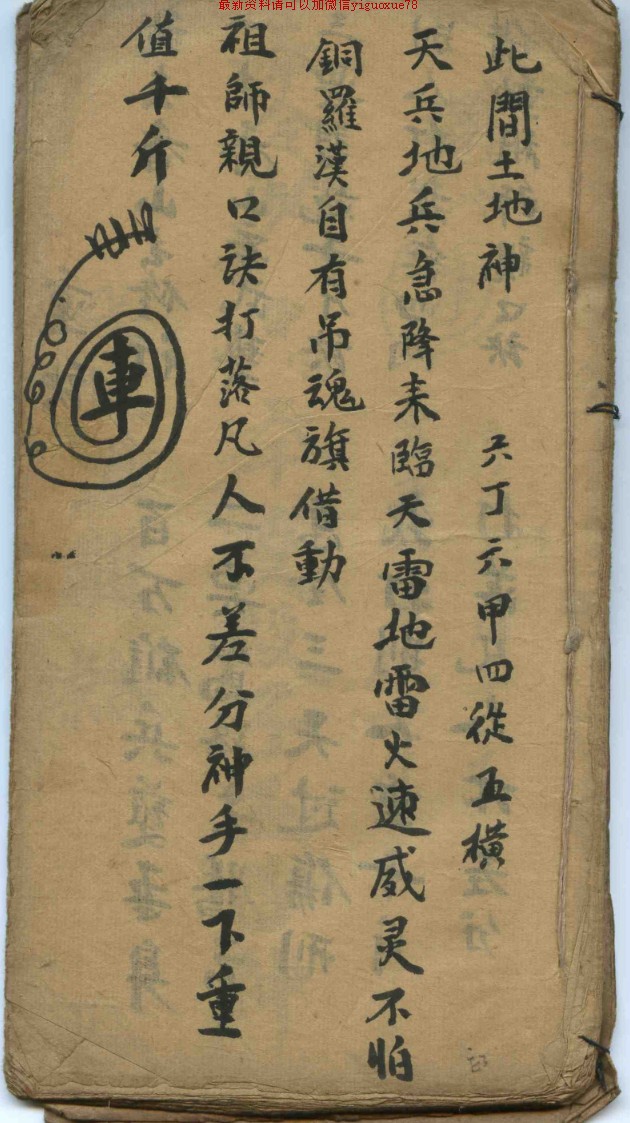 最新资料请可以加微信yiguoxue78
此間土地神 六丁六甲四從五橫
天兵地兵急降来臨天雷地雷火速威灵不怕
銅羅漢自有吊魂旗借動
祖師親口訣打落凡人不差分神手一下重
值千斤
車